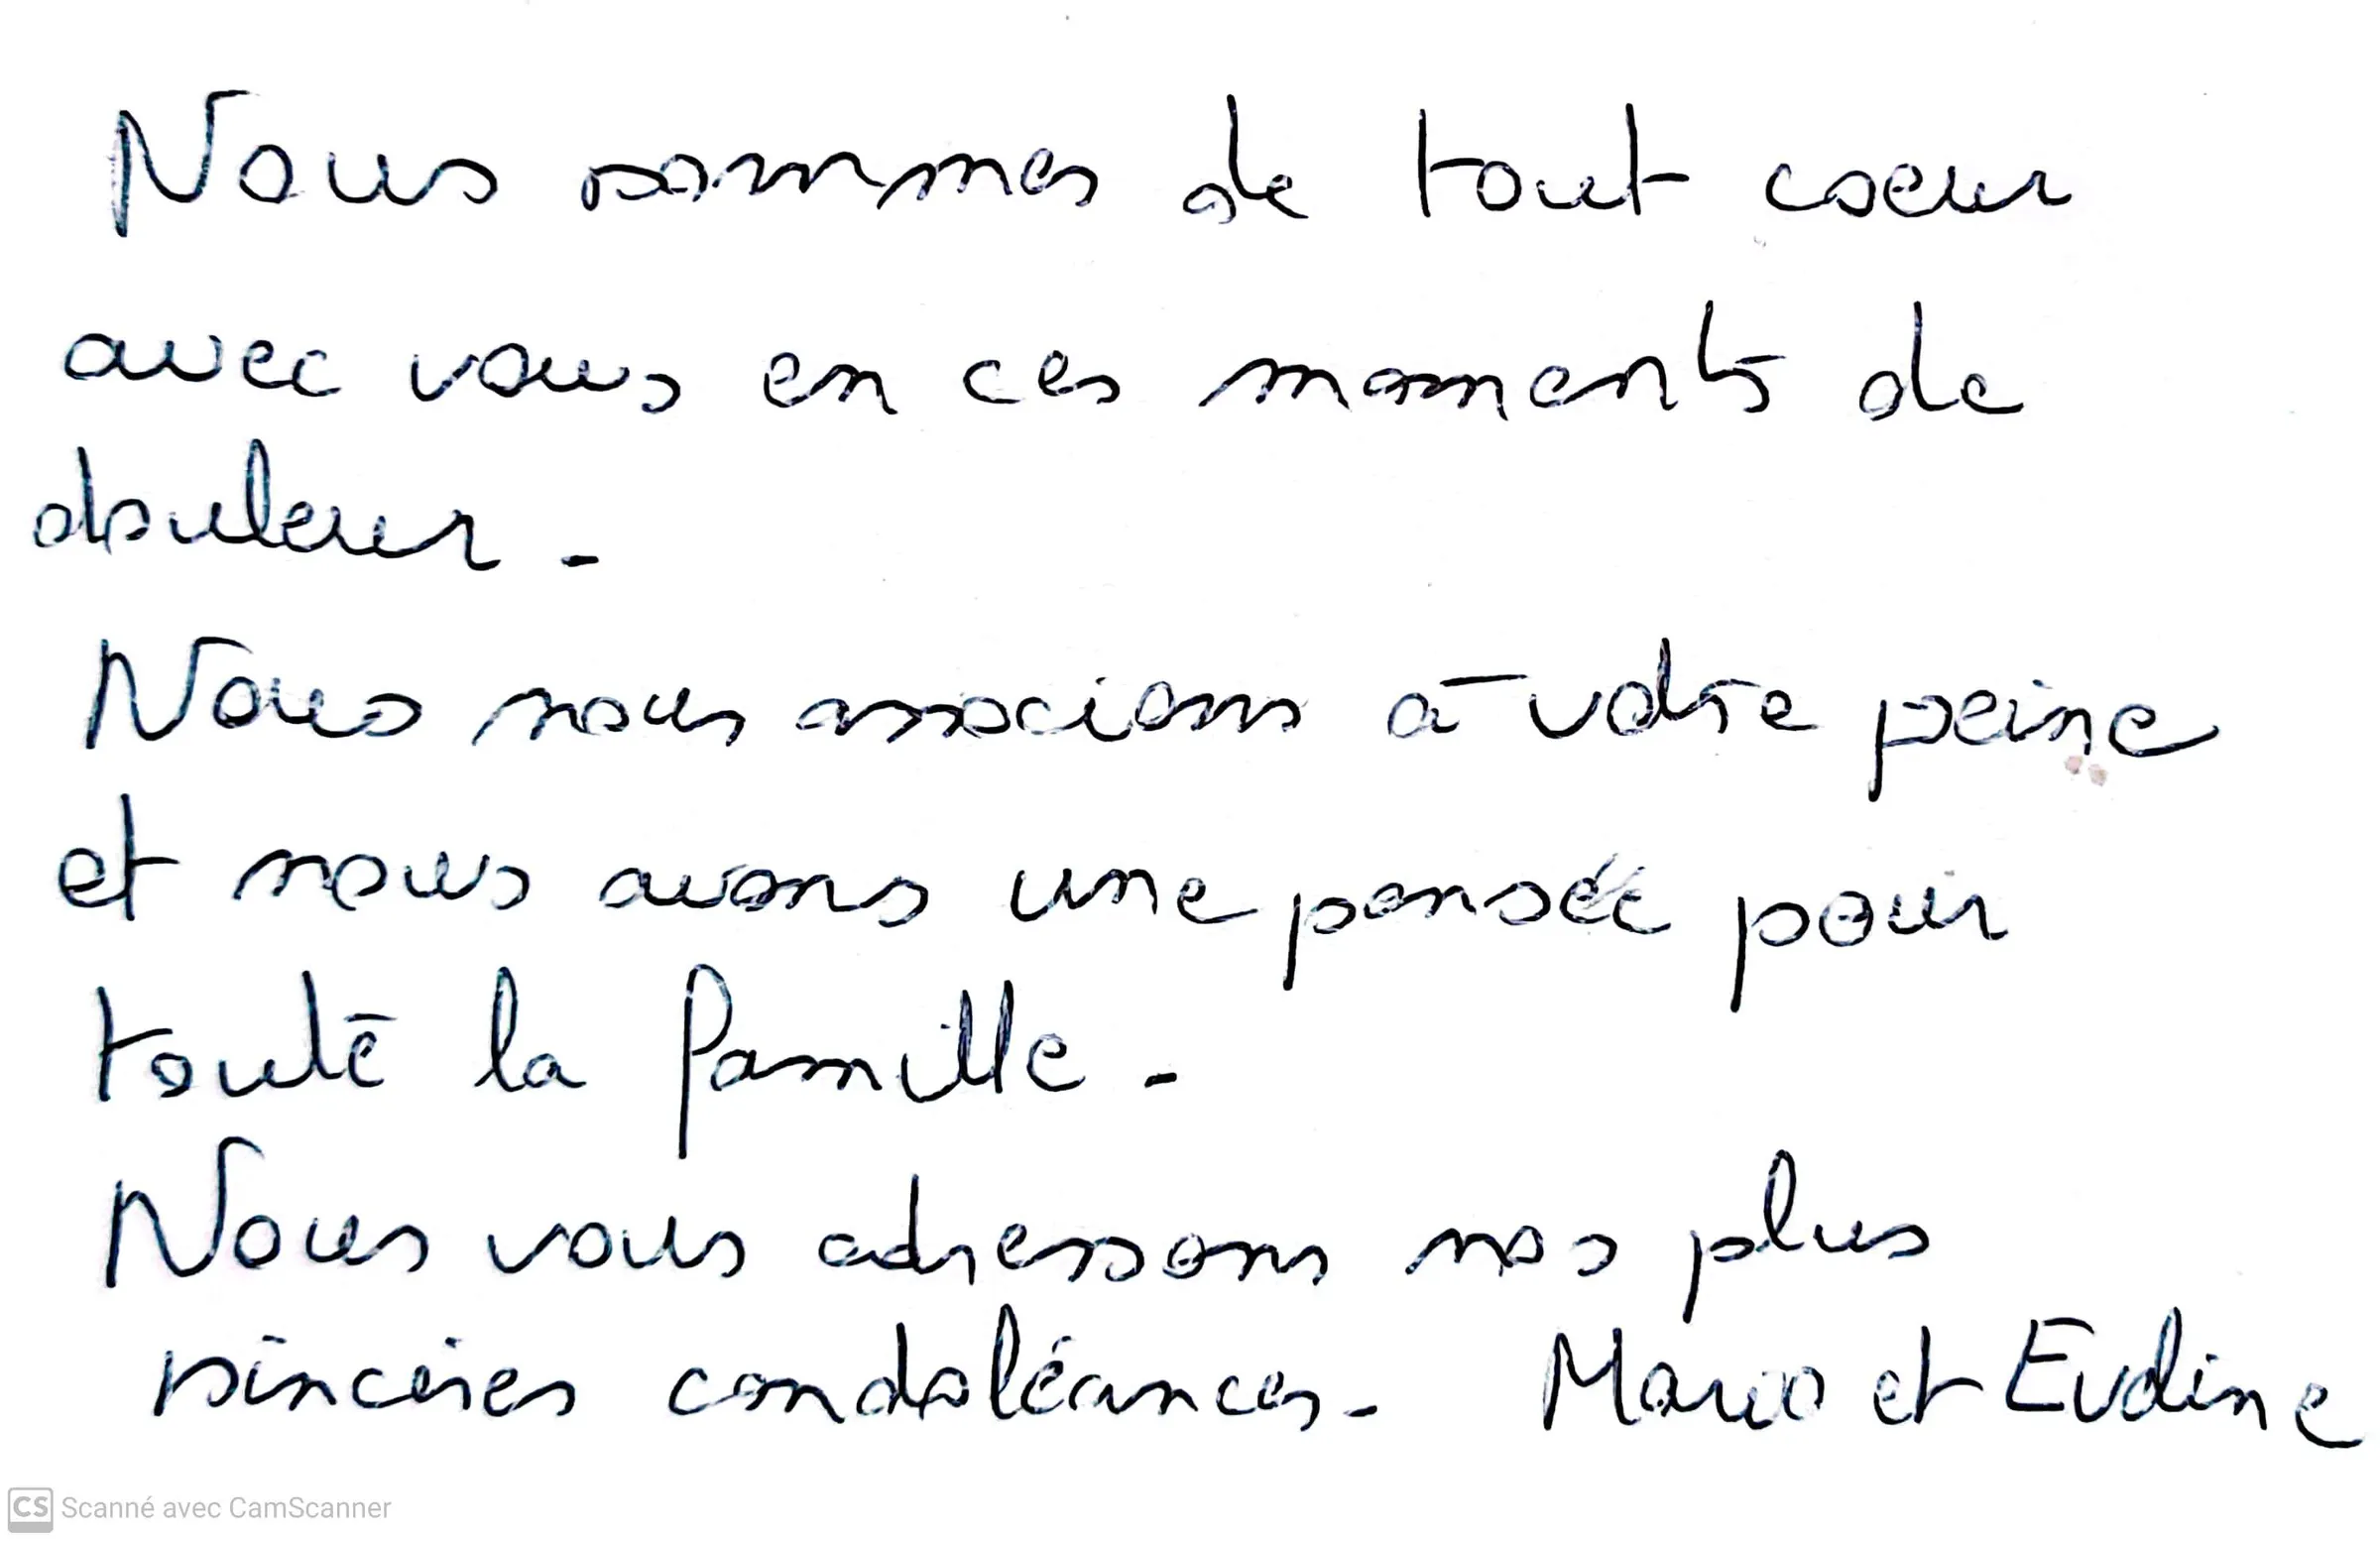 Nous sommes de tout coeur
avec vous en ces moments de
douleur.
Nous nous associons à votre peine
et nous avons une pensée pour
toute la famille.
Nous vous adressons nos plus
sincères condoléances. et
CS Scanné avec CamScanner